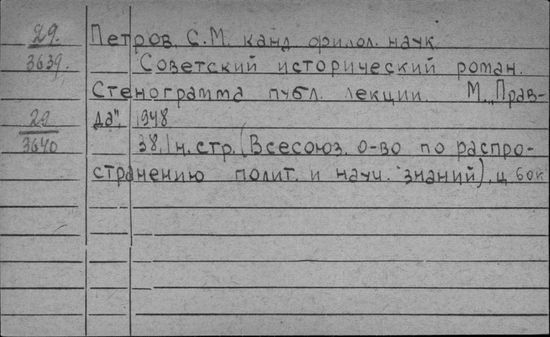 29. Петров, С.М. канд филол. наук
3639. Советский исторический роман.
Стенограмма публ. лекции. М. „Прав-
29 да", 1948
3640 38,1 н.стр. (Всесоюз. о-во по распро-
странению полит. и науч. знаний), ц 60к